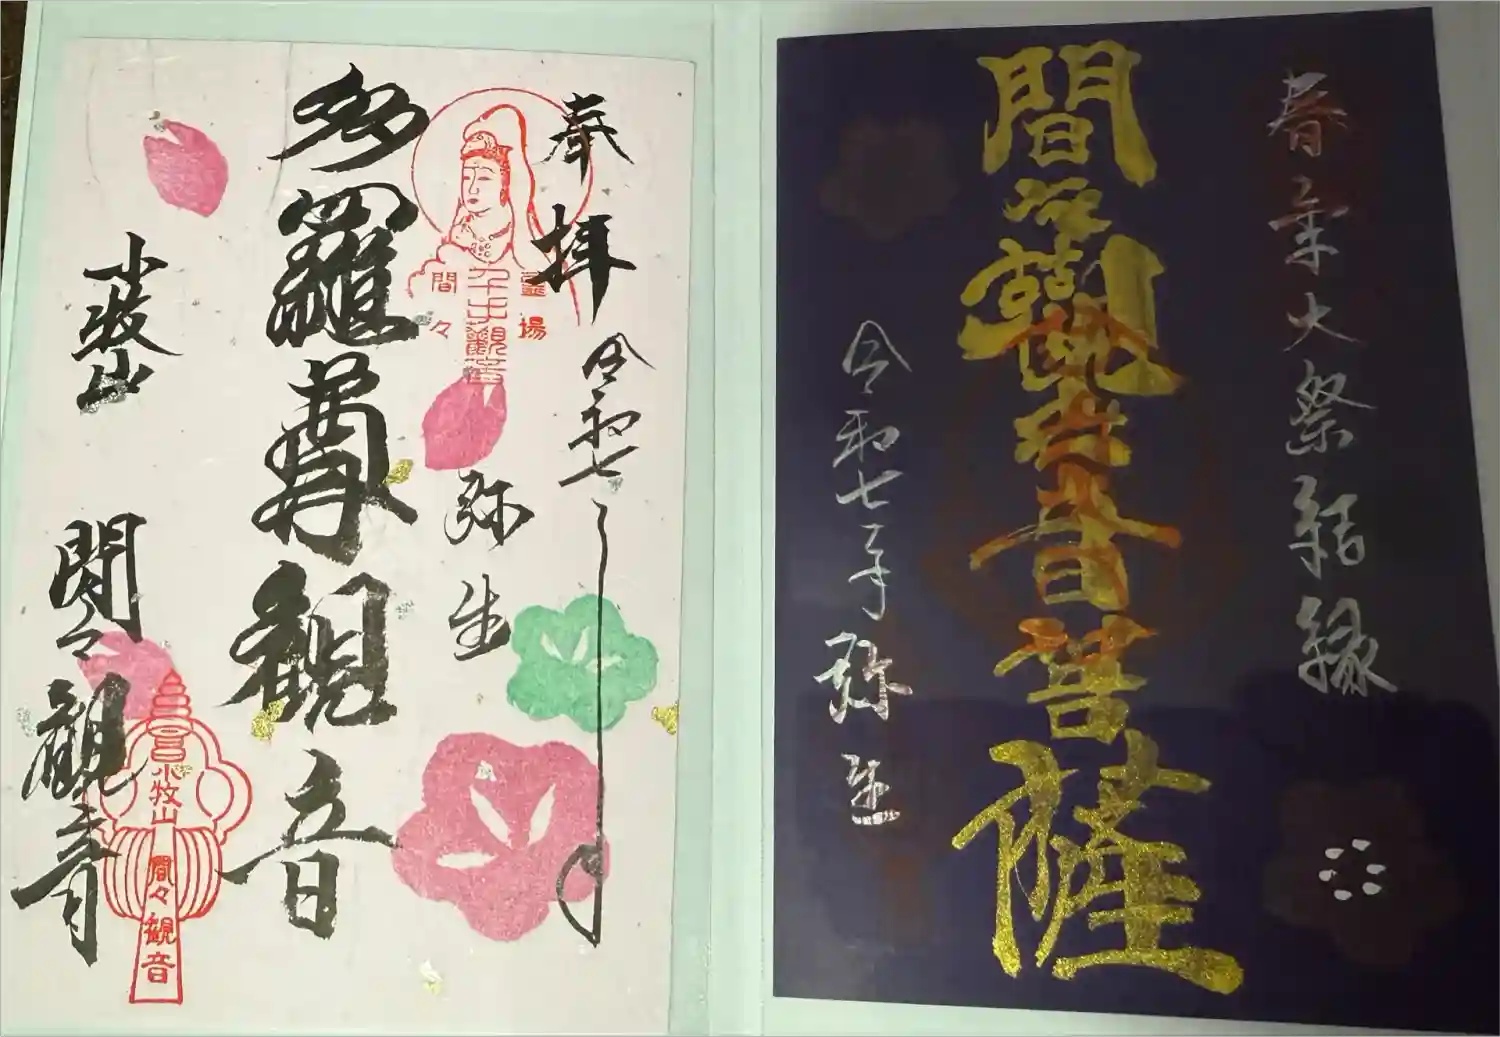 奉拝
令和七年
弥生
多羅尊観音
小牧山
間々観音
霊場
千手観音
間々
小牧山
間々観音
春季大祭結縁
間々観音菩薩
令和七年
弥生